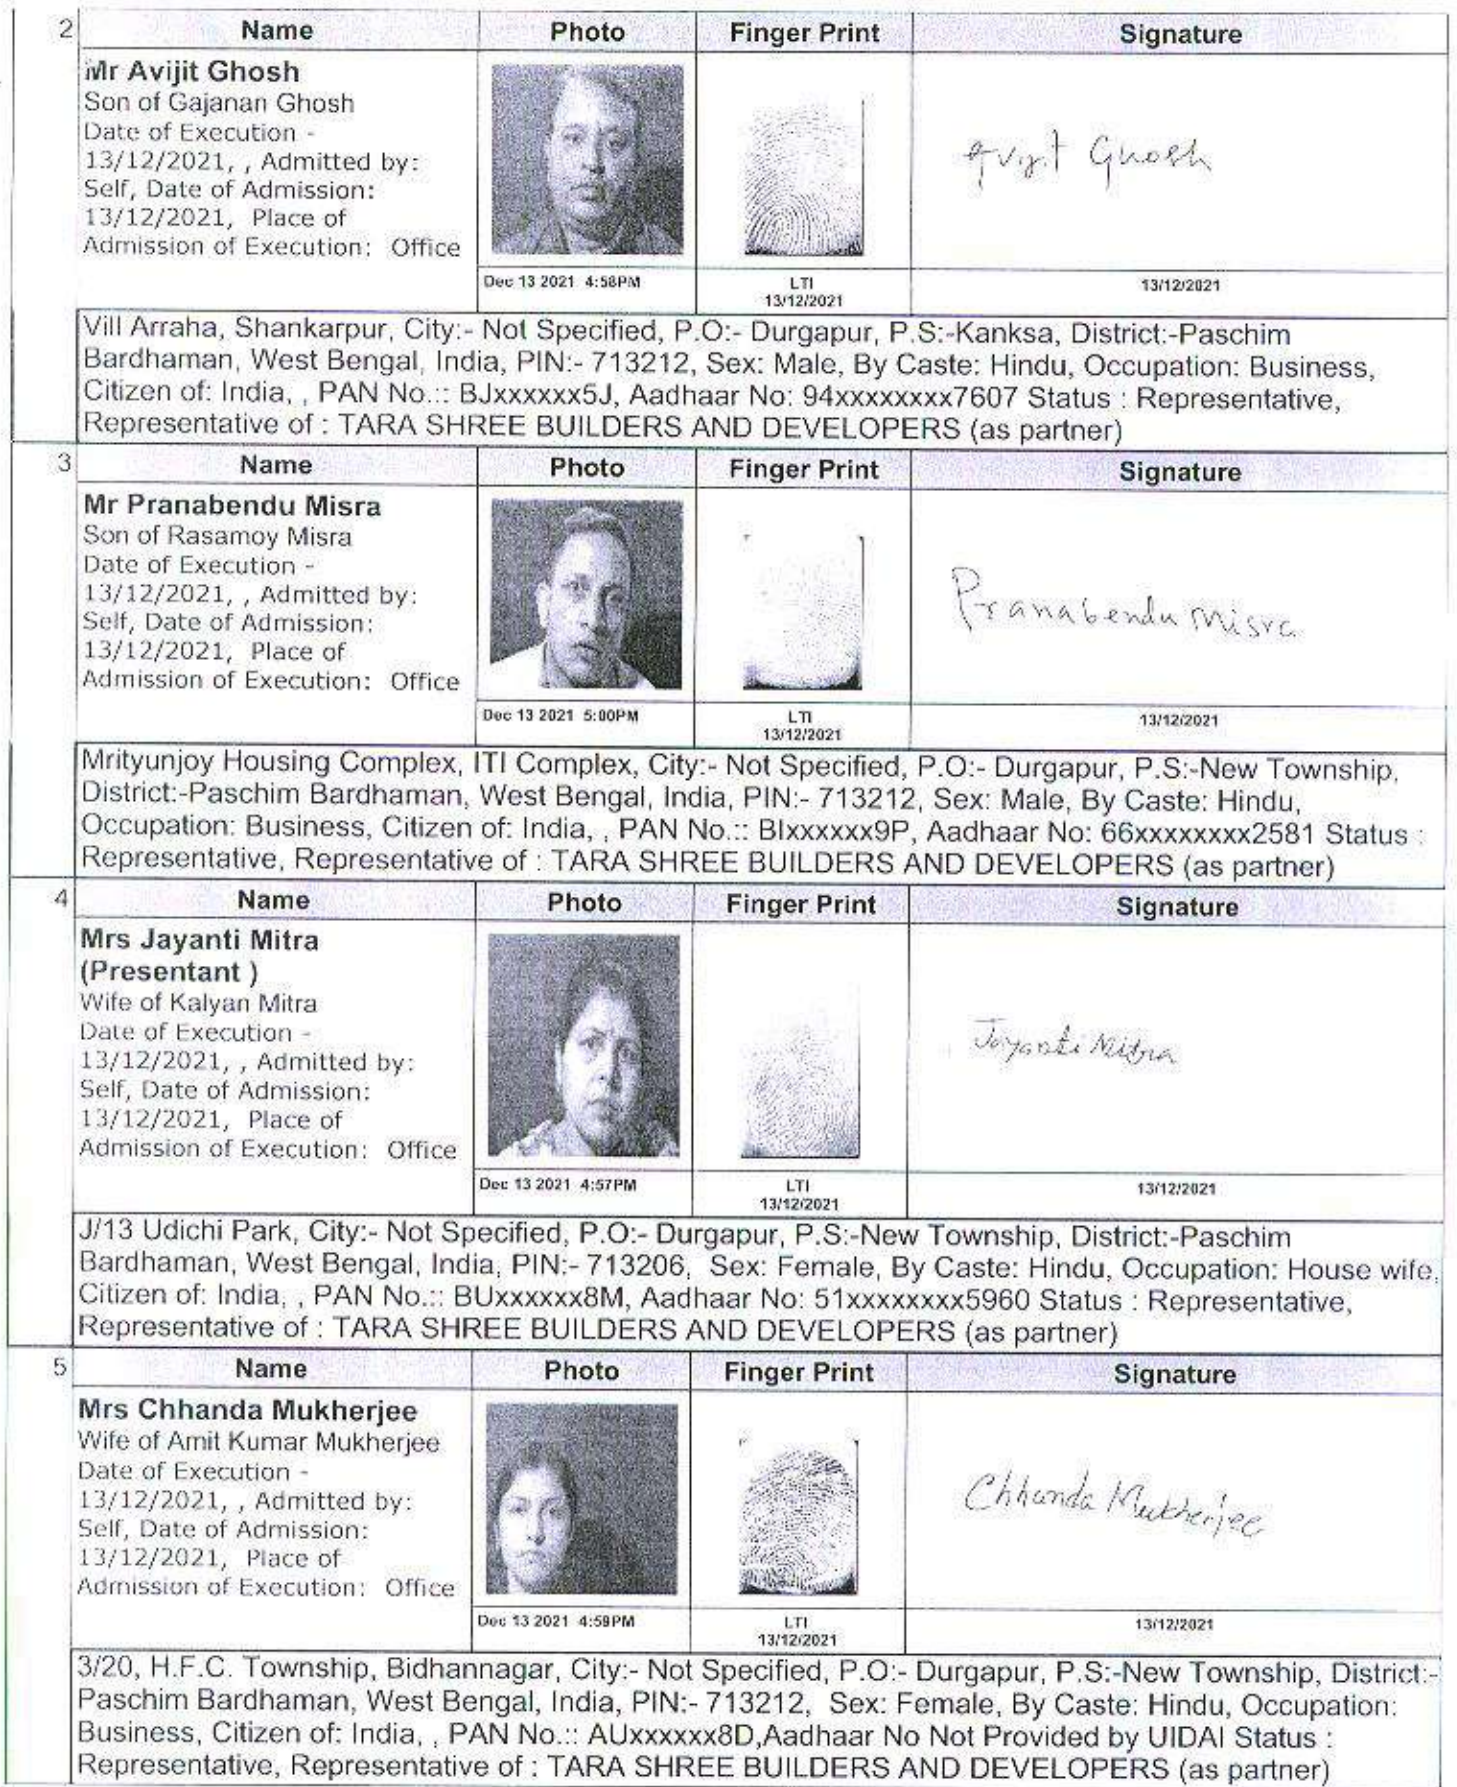 2 Name Photo Finger Print Signature
Mr Avijit Ghosh
Son of Gajanan Ghosh
Date of Execution -
13/12/2021, , Admitted by:
Self, Date of Admission:
13/12/2021, Place of
Admission of Execution: Office
Avijit Ghosh
Dec 13 2021 4:58PM LTI 13/12/2021
13/12/2021
Vill Arraha, Shankarpur, City:- Not Specified, P.O:- Durgapur, P.S:-Kanksa, District:-Paschim
Bardhaman, West Bengal, India, PIN:- 713212, Sex: Male, By Caste: Hindu, Occupation: Business,
Citizen of: India, , PAN No.:: BJxxxxxx5J, Aadhaar No: 94xxxxxxxx7607 Status : Representative,
Representative of : TARA SHREE BUILDERS AND DEVELOPERS (as partner)
3 Name Photo Finger Print Signature
Mr Pranabendu Misra
Son of Rasamoy Misra
Date of Execution -
13/12/2021, , Admitted by:
Self, Date of Admission:
13/12/2021, Place of
Admission of Execution: Office
Pranabendu Misra
Dec 13 2021 5:00PM LTI 13/12/2021
13/12/2021
Mrityunjoy Housing Complex, ITI Complex, City:- Not Specified, P.O:- Durgapur, P.S:-New Township,
District:-Paschim Bardhaman, West Bengal, India, PIN:- 713212, Sex: Male, By Caste: Hindu,
Occupation: Business, Citizen of: India, , PAN No.:: BIxxxxxx9P, Aadhaar No: 66xxxxxxxx2581 Status :
Representative, Representative of : TARA SHREE BUILDERS AND DEVELOPERS (as partner)
4 Name Photo Finger Print Signature
Mrs Jayanti Mitra
(Presentant )
Wife of Kalyan Mitra
Date of Execution -
13/12/2021, , Admitted by:
Self, Date of Admission:
13/12/2021, Place of
Admission of Execution: Office
Jayanti Mitra
Dec 13 2021 4:57PM LTI 13/12/2021
13/12/2021
J/13 Udichi Park, City:- Not Specified, P.O:- Durgapur, P.S:-New Township, District:-Paschim
Bardhaman, West Bengal, India, PIN:- 713206, Sex: Female, By Caste: Hindu, Occupation: House wife,
Citizen of: India, , PAN No.:: BUxxxxxx8M, Aadhaar No: 51xxxxxxxx5960 Status : Representative,
Representative of : TARA SHREE BUILDERS AND DEVELOPERS (as partner)
5 Name Photo Finger Print Signature
Mrs Chhanda Mukherjee
Wife of Amit Kumar Mukherjee
Date of Execution -
13/12/2021, , Admitted by:
Self, Date of Admission:
13/12/2021, Place of
Admission of Execution: Office
Chhanda Mukherjee
Dec 13 2021 4:59PM LTI 13/12/2021
13/12/2021
3/20, H.F.C. Township, Bidhannagar, City:- Not Specified, P.O:- Durgapur, P.S:-New Township, District:-
Paschim Bardhaman, West Bengal, India, PIN:- 713212, Sex: Female, By Caste: Hindu, Occupation:
Business, Citizen of: India, , PAN No.:: AUxxxxxx8D,Aadhaar No Not Provided by UIDAI Status :
Representative, Representative of : TARA SHREE BUILDERS AND DEVELOPERS (as partner)